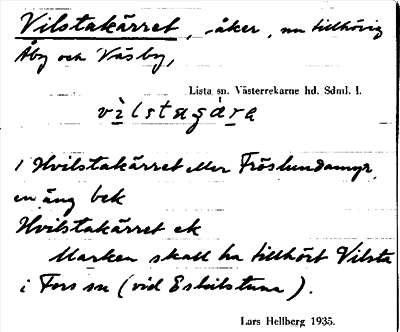 Vilstakärret, åker, nu tillhörig
Åby och Väsby,
Lista sn. Västerrekarne hd. Sdml. l.
vìlstagára
1 Hvilstakärret eller Fröslundamyr,
en äng bek
Hvilstakärret ek
Marken skall ha tillhört Vilsta
i Fors sn (vid Eskilstuna).
Lars Hellberg 1935.